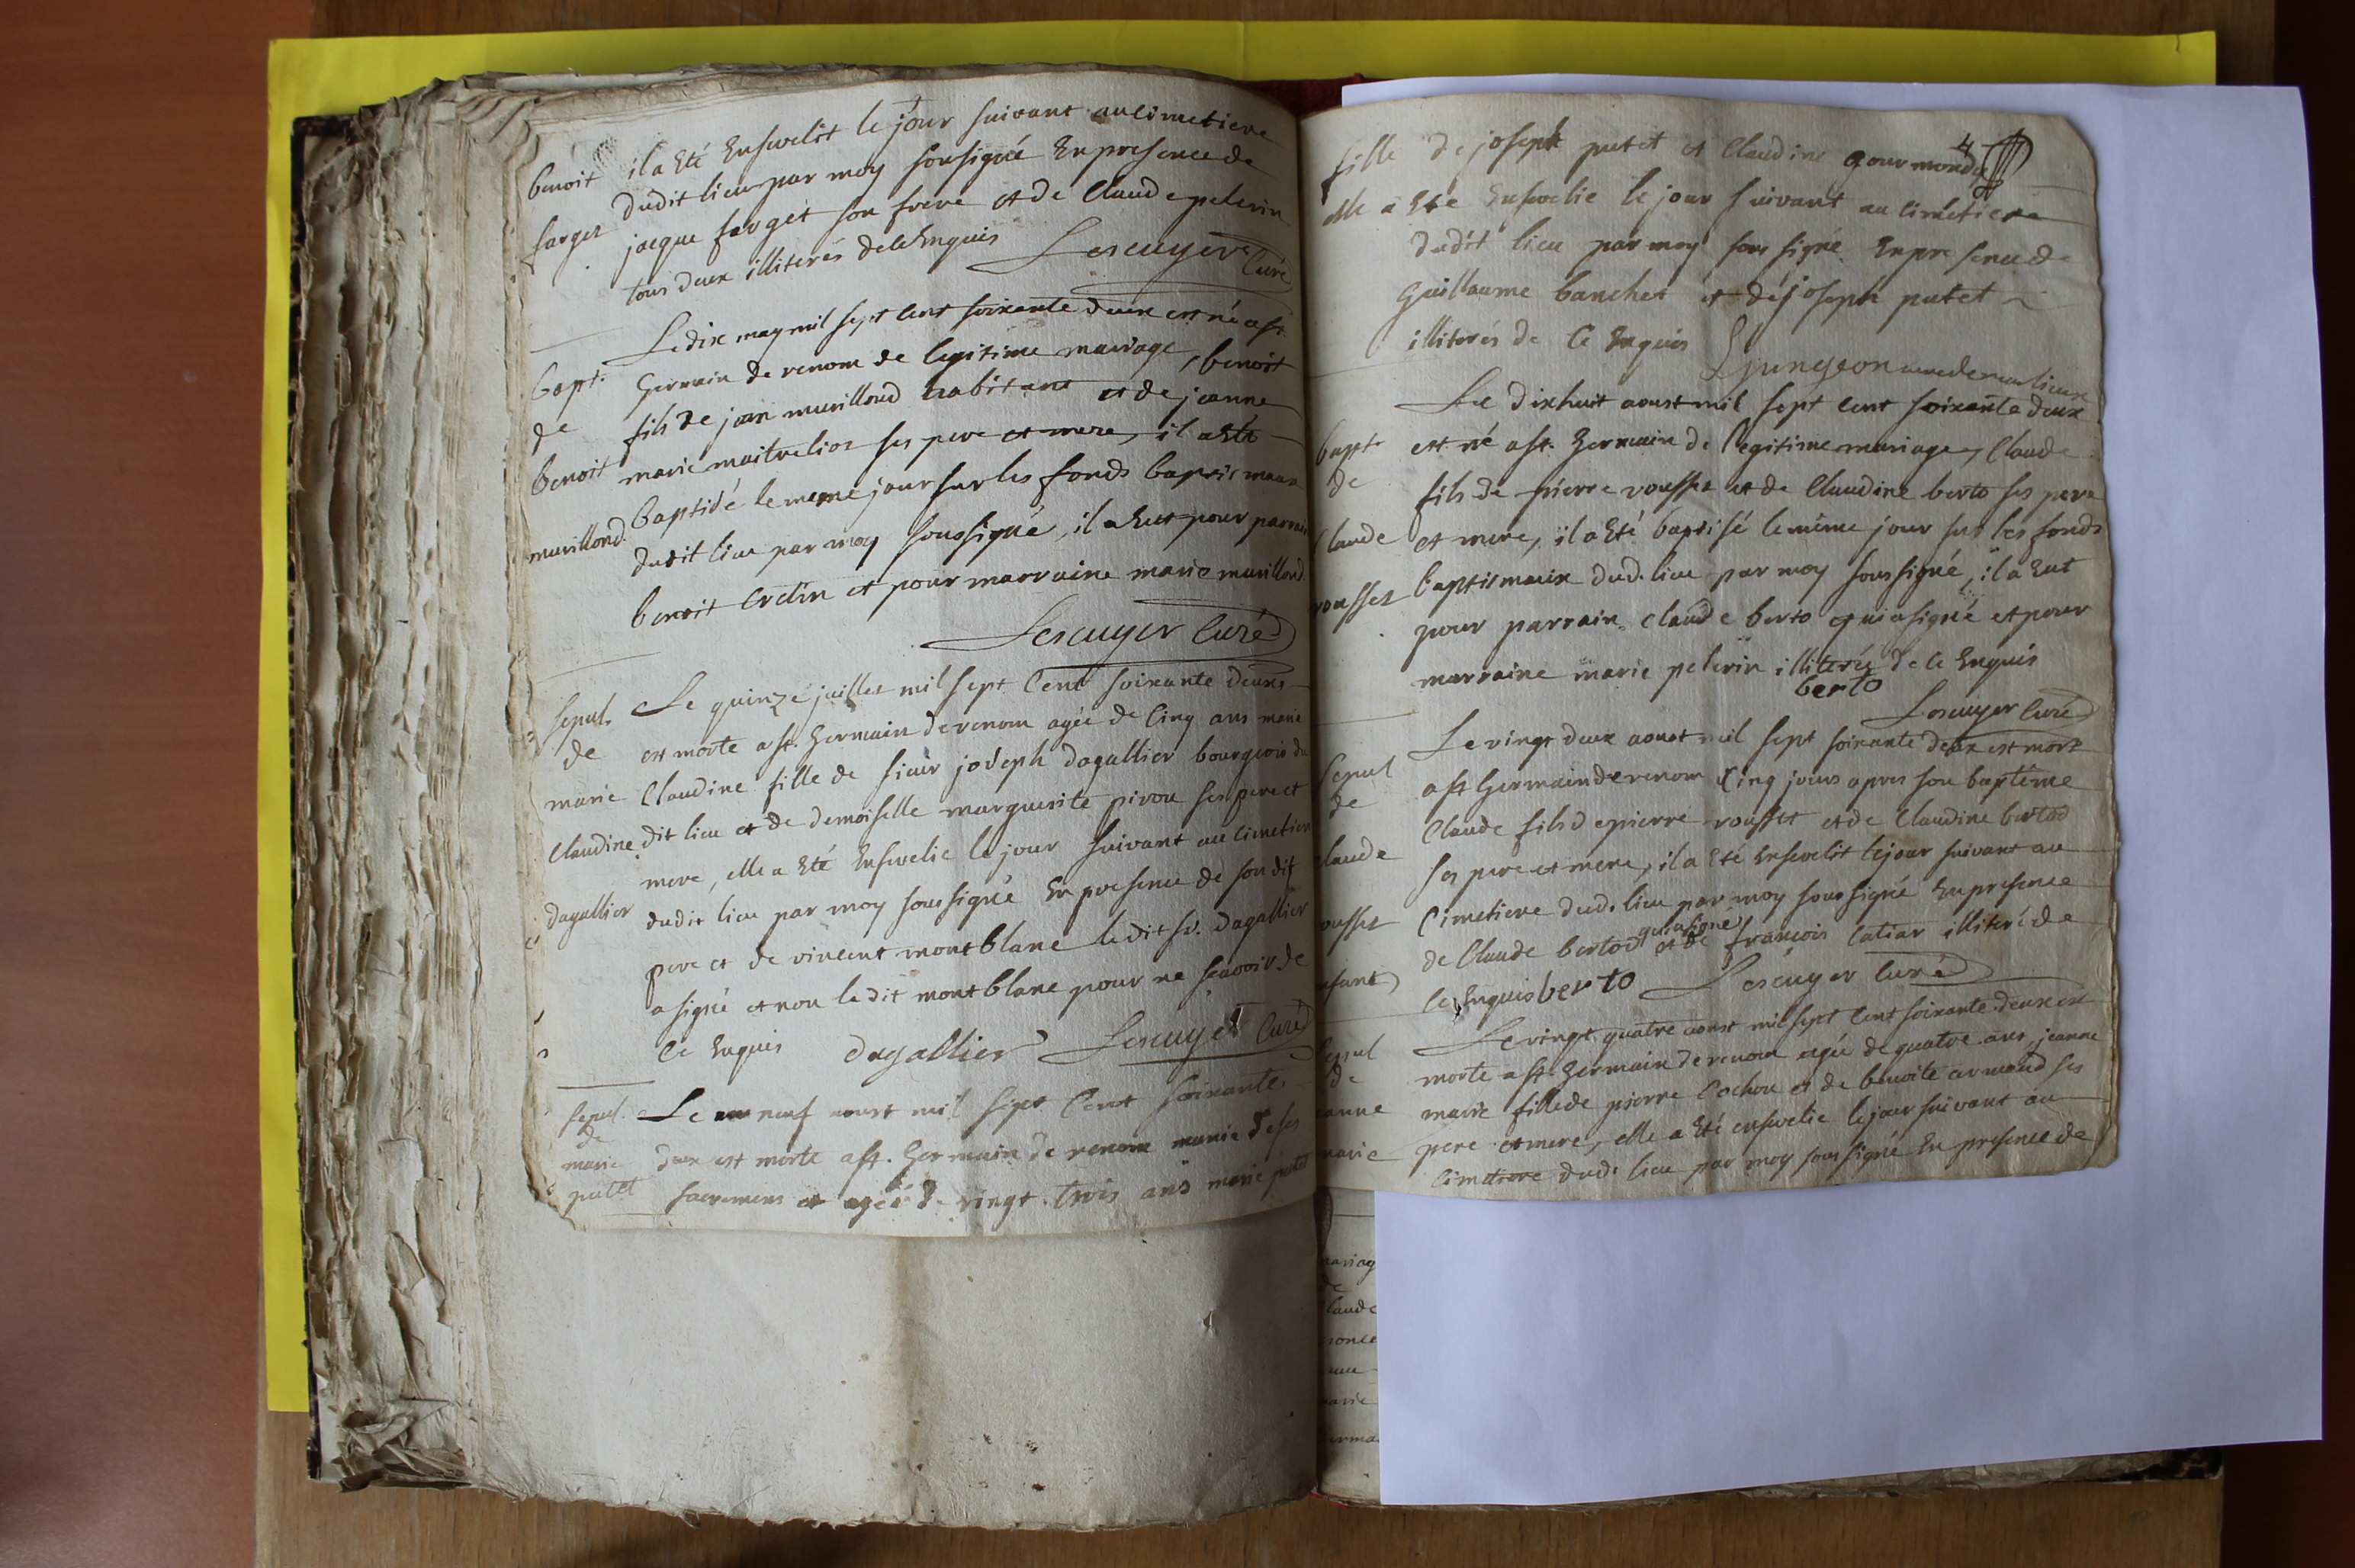 benoit
farget
il a Eté Ensevelit le jour suivant au cimetiere
dudit lieu par moy soussigné En presence de
jacque farget son frere et de Claude pelerin
tous deux illiterés de ce Enquis Lescuyer Curé
bapt.
de
benoit
murillond.
Le dix may mil sept cent soixante deux est né a st.
Germain de renom de legitime mariage, benoit
fils de jean murillond habitant et de jeanne
marie maitrelios ses pere et mere, il a Eté
baptisé le meme jour sur les fonds baptismaux
dudit lieu par moy soussigné, il a Eut pour parrain
benoit et pour marraine marie murillond.
Lescuyer Curé
sepul.
de
marie
Claudine
dagallier
Le quinze juillet mil sept Cent soixante deux
est morte a st. Germain de renom agée de Cinq ans marie
Claudine fille de sieur joseph dagallier bourgeois du
dit lieu et de demoiselle marguerite pirou ses pere et
mere, elle a Eté Ensevelie le jour suivant au Cimetiere
dudit lieu par moy soussigné En presence de son dit
pere et de vincent montblanc le dit sr. dagallier
a signé et non le dit montblanc pour ne scavoir de
Ce Enquis dagallier Lescuyer Curé
sepul.
de
marie
putet
Le neuf aoust mil sept Cent soixante
deux est morte a st. Germain de renom munie de ses
sacremens et agée de vingt trois ans marie putet
4
fille de joseph putet et Claudine gourmond
elle a Eté Ensevelie le jour suivant au cimetiere
dudit lieu par moy soussigné En presence de
Guillaume banchet et de joseph putet
illiterés de Ce Enquis
bapt.
de
Claude
rousset
Le dixhuit aoust mil sept cent soixante deux
est né a st. Germain de legitime mariage, Claude
fils de pierre rousset et de Claudine berto ses pere
et mere, il a Eté baptisé le même jour sur les fonds
baptismaux dud. lieu par moy soussigné, il a Eut
pour parrain Claude berto qui a signé et pour
marraine marie pelerin illiterée de Ce Enquis
berto Lescuyer Curé
sepul
de
claude
rousset
enfant
Le vingt deux aoust mil sept soixante deux est mort
a st Germain de renom Cinq jours apres son baptême
Claude fils de pierre rousset et de Claudine bertod
ses pere et mere, il a Eté Ensevelit le jour suivant au
Cimetiere dud. lieu par moy soussigné En presence
de Claude bertod qui a signé et de francois latiar illiteré de
ce Enquis berto Lescuyer Curé
sepul
de
jeanne
marie
Le vingt quatre aoust mil sept Cent soixante deux est
morte a st. Germain de renom agée de quatre ans, jeanne
marie fille de pierre Cochon et de benoite armand ses
pere et mere, elle a Eté ensevelie le jour suivant au
Cimetiere dud. lieu par moy soussigné En presence de